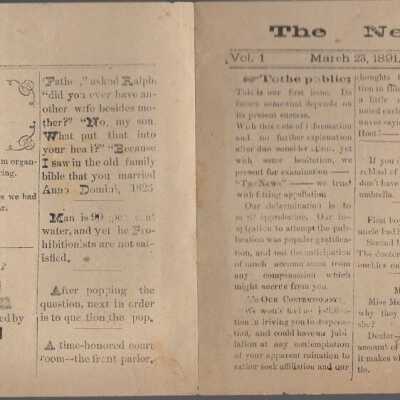 m organ-
ring.
s we had
ar.
?
ed by
"Fathe ," asked Ralph,
"did you ever have an-
other wife besides mo-
ther?" "No, my son.
What put that into
your head?" "Because
I saw in the old family
bible that you married
Anno Domini, 1825
Man is 90 per cent
water, and yet he Pro-
hibitionists are not sat-
isfied.
After popping the
question, next in order
is to question the pop.
A time-honored court
room—the front parlor.
The Ne
Vol. 1 March 23, 1891.
To the public;
This is our first issue. Its
future somewhat depends on
its present success.
With this rate of information
and no further explanation
after due consideration, yet
with some hesitation, we
present for examination —
"The News" — we trust
with fitting appellation.
Our determination is to
Our in-
tigation to attempt the pub-
lication was popular gratifica-
tion, and not the anticipation
of much accumulation from
any compensation which
might accrue from you.
To Our Contemporary:
We won't have
in driving you to despera-
tion, and could have no jubi-
lation at any contemplation
of your apparent ruination to
rather seek affiliation and our
thoughts
tion in
a little
noted
waves say
Host!—
If you
s of
don't have
umbrella.
First bo
uncle bad
Second
The doctor
Miss Me
why they
she?
Dealer—
amount of
it makes wh
tle.